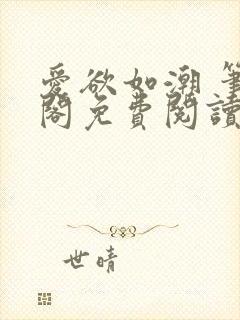 愛欲如潮 筆
閣免費閱讀
世晴